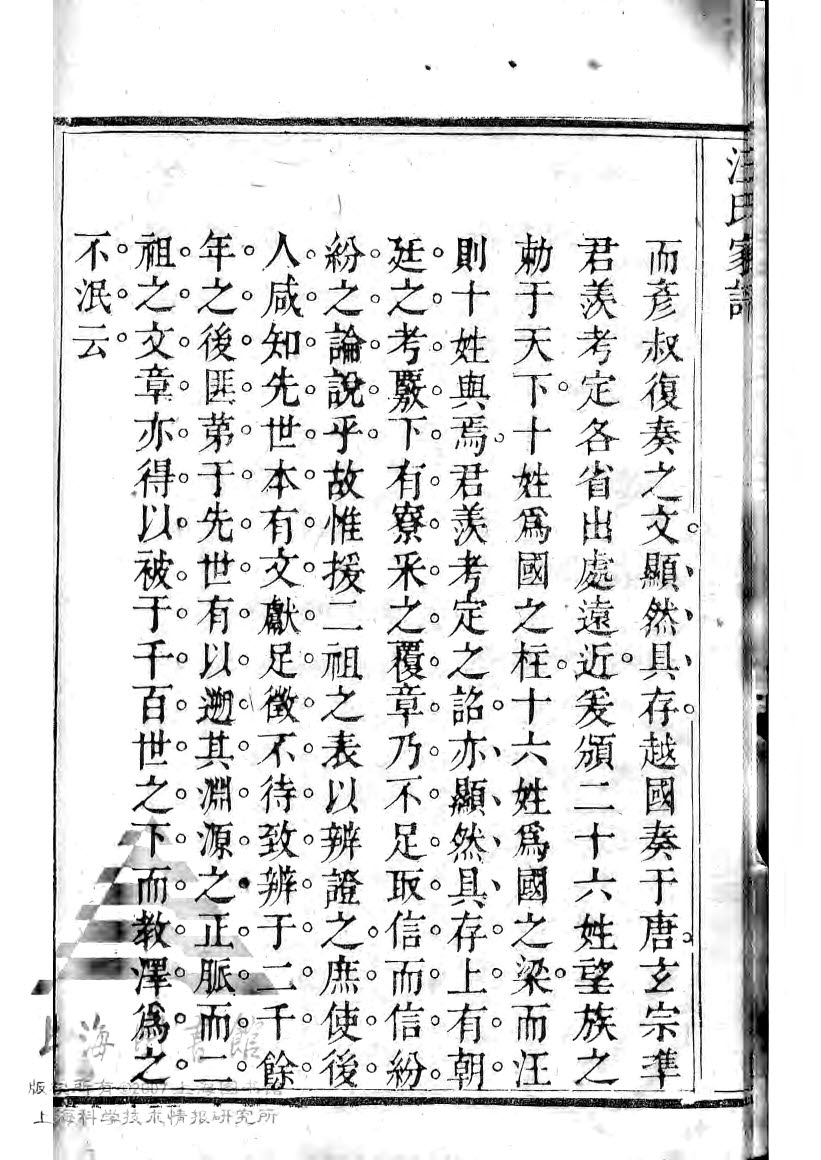 汪氏家譜
而彥叔復奏之文顯然具存越國奏于唐玄宗準
君羨考定各省出處遠近爰頒二十六姓望族之
勅于天下十姓爲國之柱十六姓爲國之梁而汪
則十姓與焉君羨考定之詔亦顯然具存上有朝
廷之考覈下有寮采之覆章乃不足取信而信紛
紛之論說乎故惟援二祖之表以辨證之庶使後
人咸知先世本有文獻足徵不待致辨于二千餘
年之後匪苐于先世有以遡其淵源之正脈而二
祖之文章亦得以被于千百世之下而教澤爲之
不泯云
上海 書館
上海科学技术情报研究所